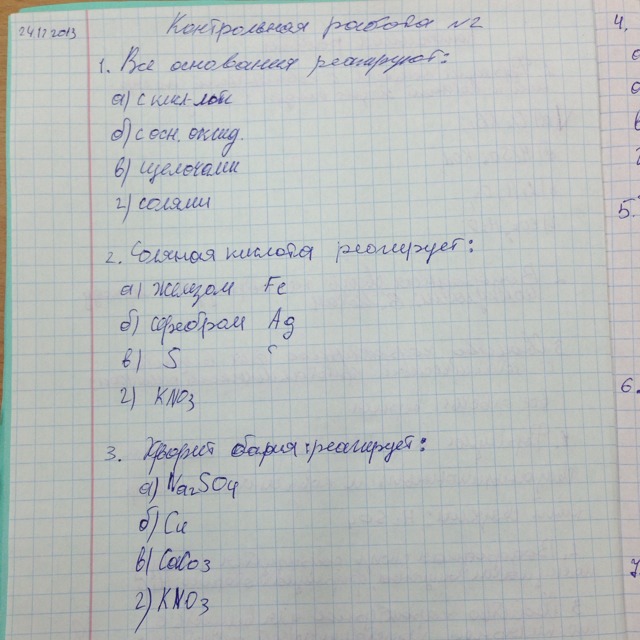 24.12.2013
Контрольная работа №2
1. Все основания реагируют:
а) с кисл-той
б) с осн. оксид.
в) щелочами
г) солями
2. Соляная кислота реагирует:
а) железом Fe
б) серебром Ag
в) S
г) KNO3
3. Хлорит бария реагирует:
а) Na2SO4
б) Cu
в) CaCo3
г) KNO3
4.
5.
6.
7.